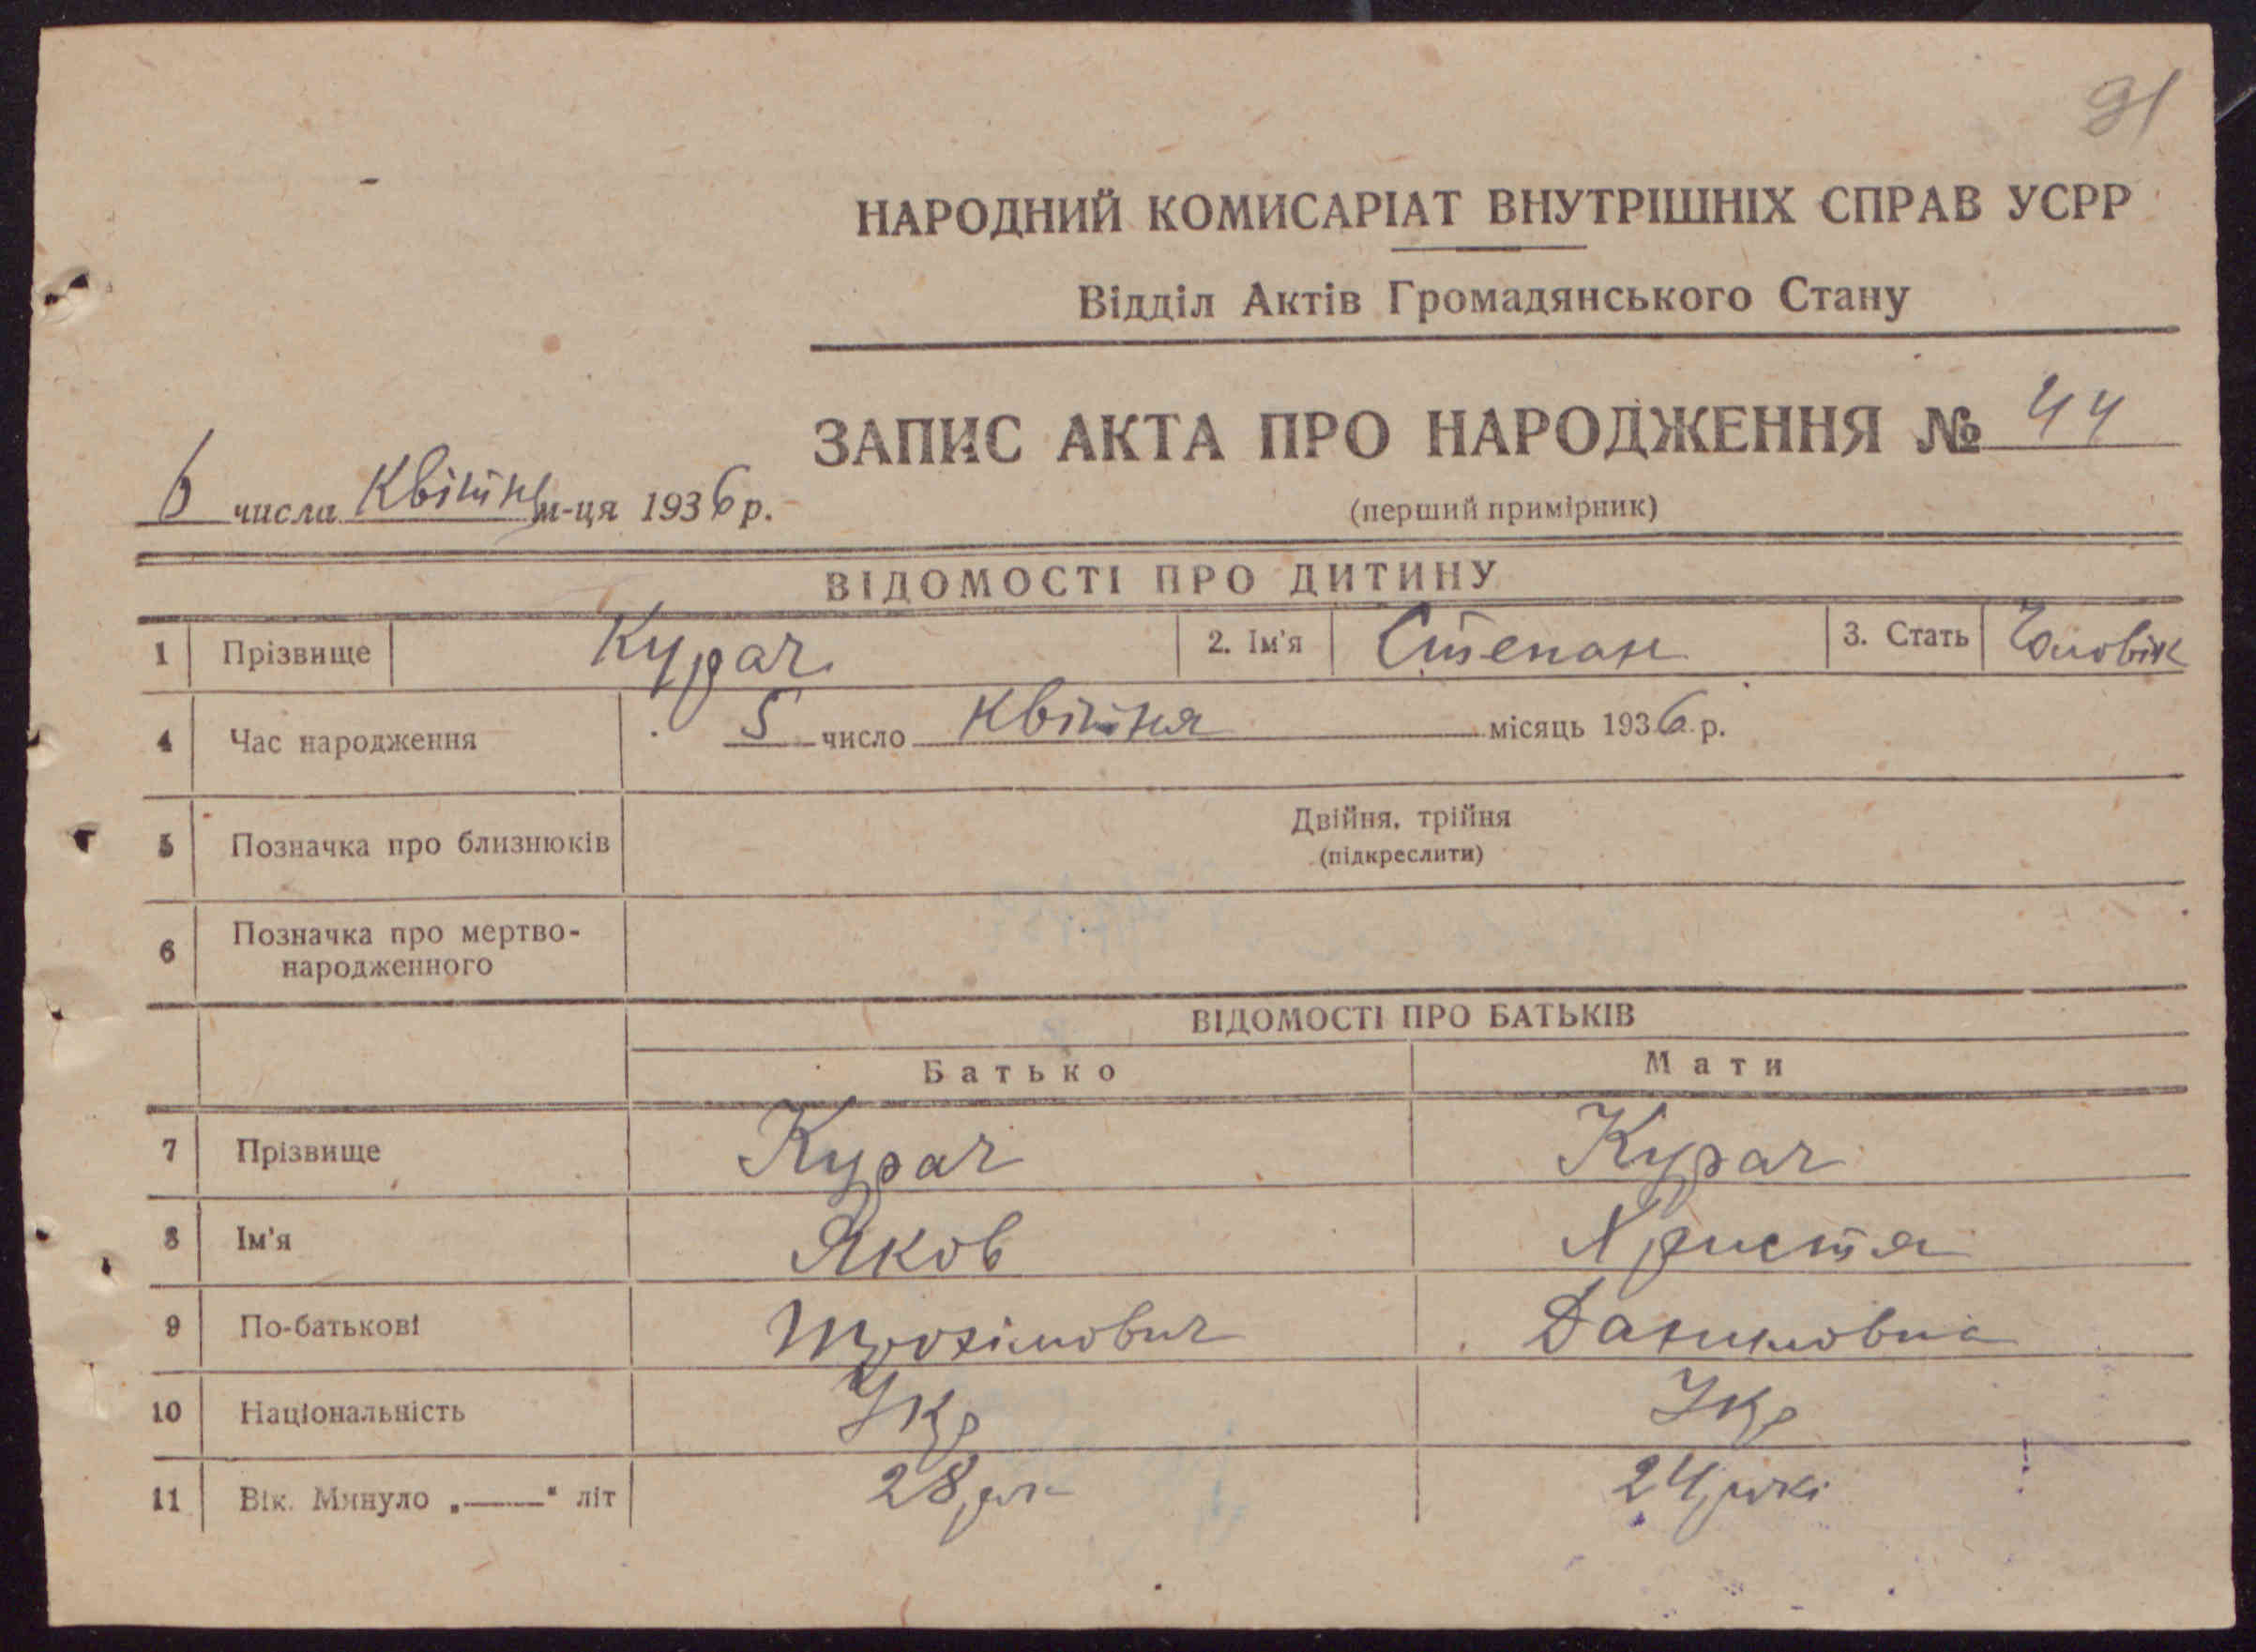 91
НАРОДНИЙ КОМИСАРІАТ ВНУТРІШНІХ СПРАВ УСРР
Відділ Актів Громадянського Стану
ЗАПИС АКТА ПРО НАРОДЖЕННЯ № 44
6 числа Квітня м-ця 1936 р.
(перший примірник)
ВІДОМОСТІ ПРО ДИТИНУ
1 Прізвище Курач 2. Ім'я Степан 3. Стать Чоловік
4 Час народження 5 число Квітня місяць 1936 р.
5 Позначка про близнюків Двійня, трійня
(підкреслити)
6 Позначка про мертво-
народженного
ВІДОМОСТІ ПРО БАТЬКІВ
Батько Мати
7 Прізвище Курач Курач
8 Ім'я Яков Христя
9 По-батькові Трохімович Даниловна
10 Національність Укр Укр
11 Вік. Минуло „——" літ 28 24 рокі